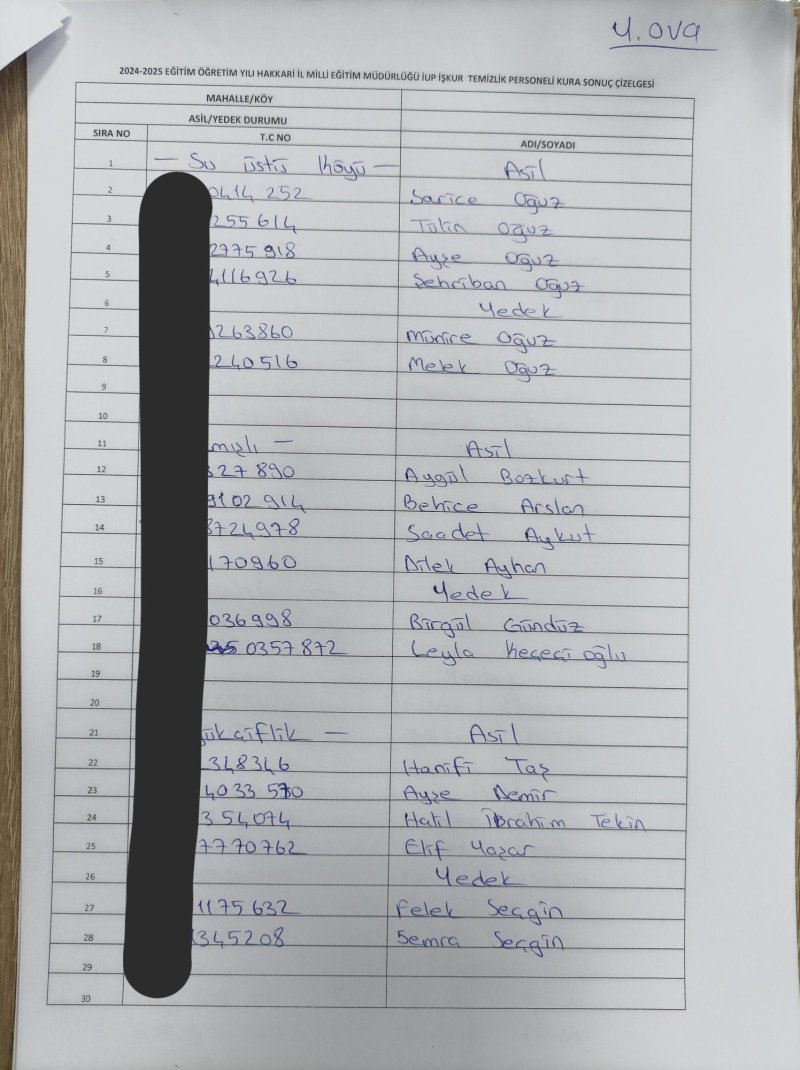 Y. OVA
2024-2025 EĞİTİM ÖĞRETİM YILI HAKKARİ İL MİLLİ EĞİTİM MÜDÜRLÜĞÜ İUP İŞKUR TEMİZLİK PERSONELİ KURA SONUÇ ÇİZELGESİ
MAHALLE/KÖY
ASİL/YEDEK DURUMU
SIRA NO T.C NO ADI/SOYADI
1 — Su üstü Köyü — Asil
2 0414 252 Sarice Oğuz
3 255614 Tülin Oğuz
4 2775918 Ayşe Oğuz
5 4116926 Şehriban Oğuz
6 Yedek
7 263860 Münire Oğuz
8 240516 Melek Oğuz
9
10
11 mışlı — Asil
12 327890 Aygül Bozkurt
13 9102 914 Behice Arslan
14 8724978 Saadet Aykut
15 170960 Dilek Ayhan
16 Yedek
17 036998 Birgül Gündüz
18 0357872 Leyla Keçeci oğlu
19
20
21 ükçiflik — Asil
22 348346 Hanifi Taş
23 4033 570 Ayşe Demir
24 354074 Halil İbrahim Tekin
25 7770762 Elif Yaşar
26 Yedek
27 1175632 Felek Seçgin
28 345208 Semra Seçgin
29
30